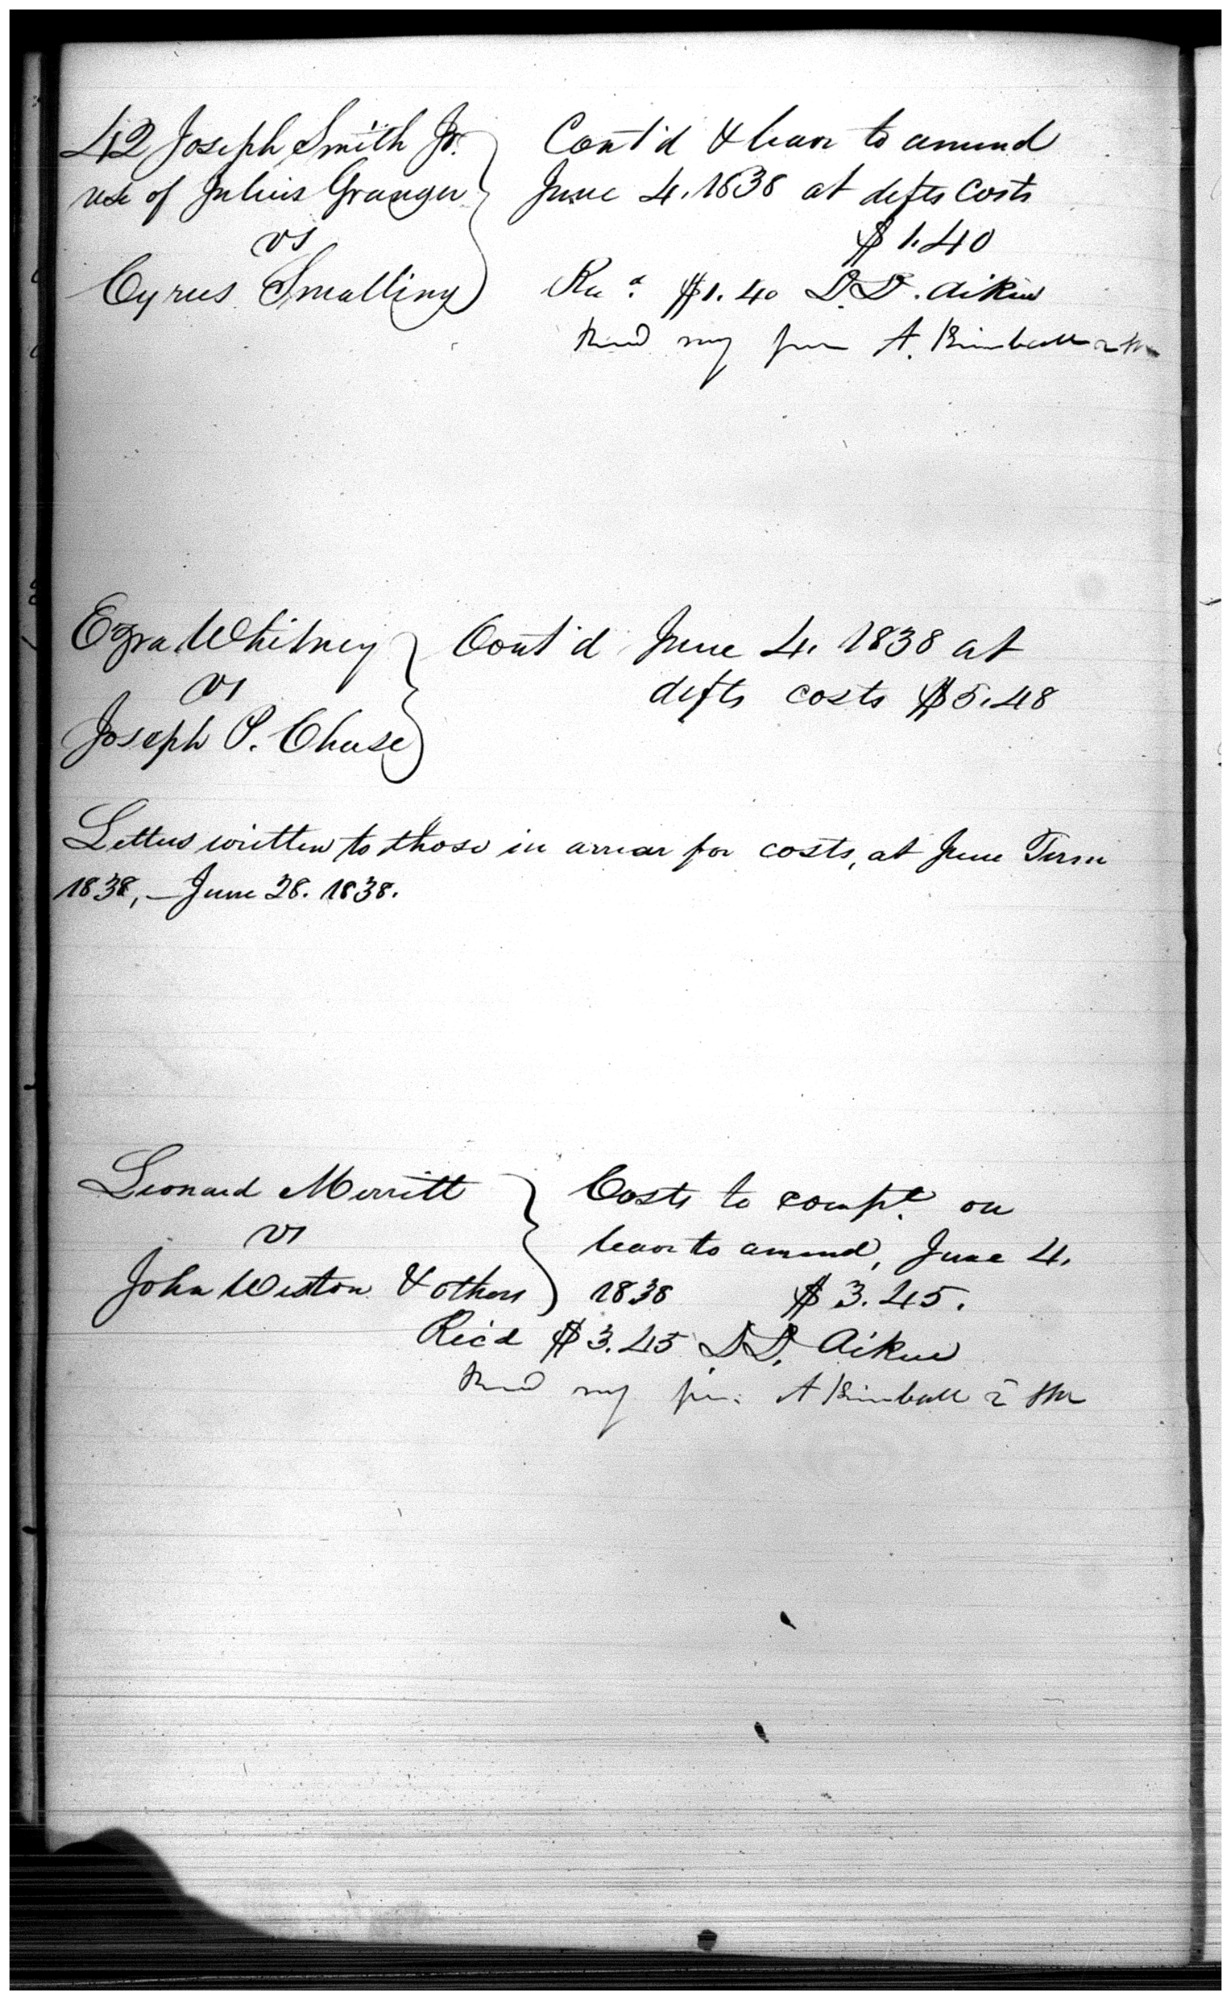 42 Joseph Smith Jr.
use of Julius Granger
vs
Cyrus Smalling
Cont'd & leave to amend
June 4. 1838 at defts costs
$1.40
Recd. $1.40 D.D. Aiken
my A. Kimball
Ezra Whitney
vs
Joseph P. Chase
Cont'd June 4. 1838 at
defts costs $5.48
Letters written to those in arrear for costs, at June Term
1838,—June 28. 1838.
Leonard Merritt
vs
John Weston & others
Costs to compt. on
leave to amend, June 4.
1838 $3.45.
Rec'd $3.45 D.D. Aiken
my A Kimball